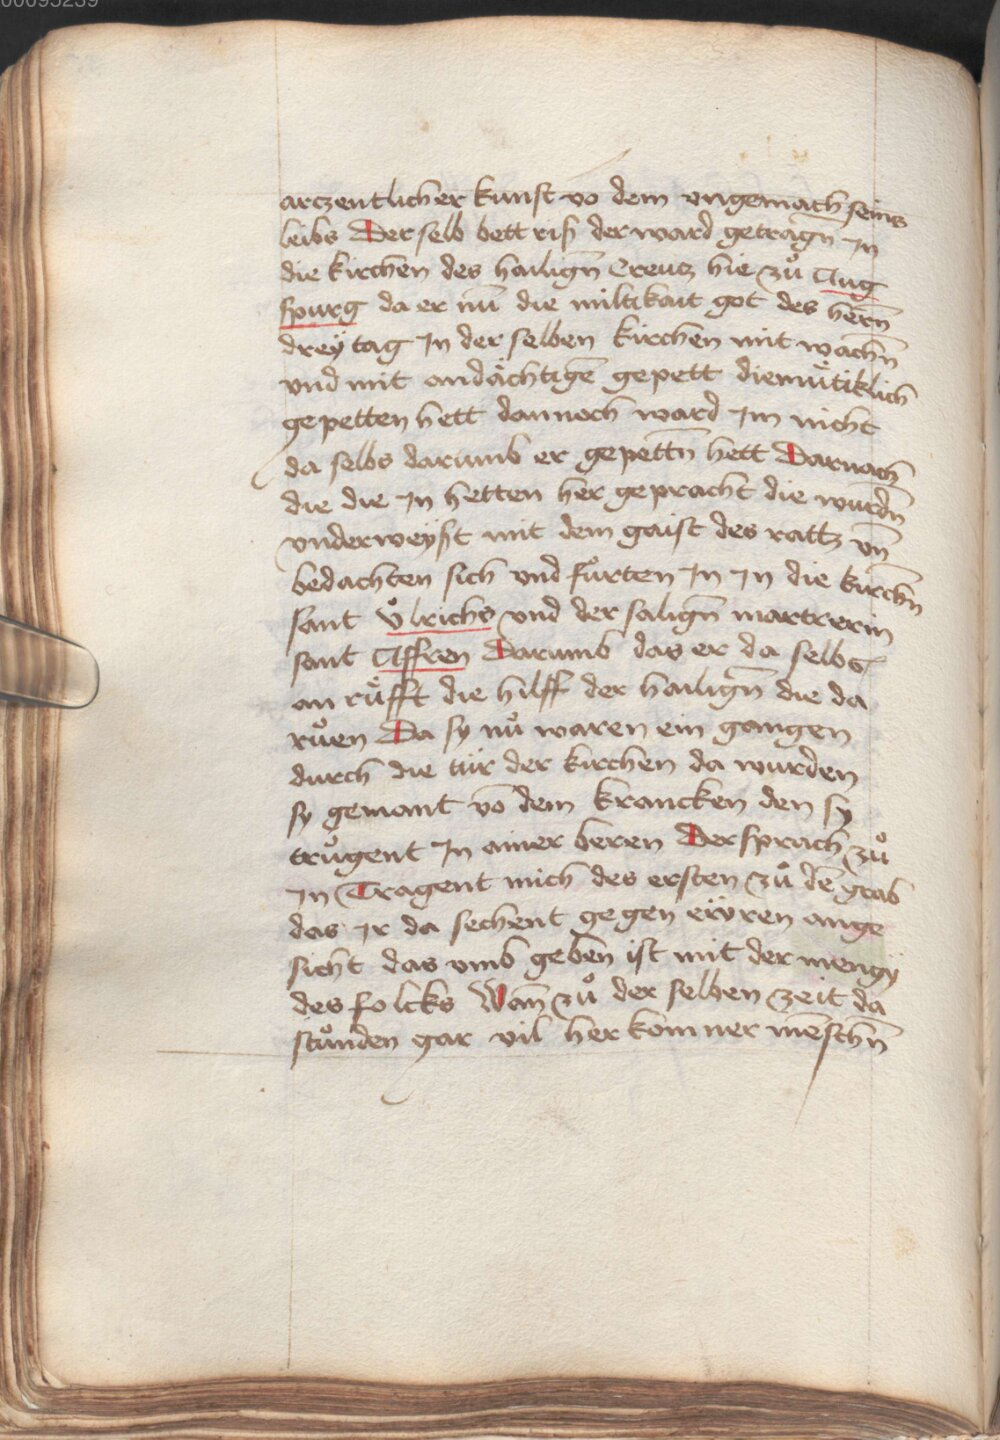 00095239
arczentlicher kunst vo dem vngemach seins
leibs Der selb bett riß der ward getragn̄ Jn
die kirchen des hailign̄ Creucz hie zuͦ Aug
spurg da er nuͦ die miltikait got des hern̄
dreÿ tag Jn der selben kirchen mit wachn̄
vnd mit andächtigē gepett diemuͤtiklich
gepetten hett dannoch ward Jm nicht
da selbs darumb er gepettn̄ hett Darnach
die die Jn hetten her gepracht die wurdn̄
vnderweÿst mit dem gaist des rattz vn̄
bedachten sich vnd fuͦrten Jn Jn die kirchn̄
sant Vͦlrichs vnd der salign̄ martrerin
sant Affren Darumb das er da selbs
an ruͤfft die hilff der hailign̄ die da
ruͦen Da sy nuͦ waren ein gangen
durch die tür der kirchen da wurden
sy gemant vō dem krancken den sy
truͦgent Jn ainer beren Der sprach zuͦ
Jn Tragent mich des ersten zuͦ dē grab
das Jr da sechent gegen eẅren ange
sicht das vmb geben ist mit der mengÿ
des folcks Wan̄ zuͦ der selben zeit da
stuͦnden gar vil her komner mēschn̄